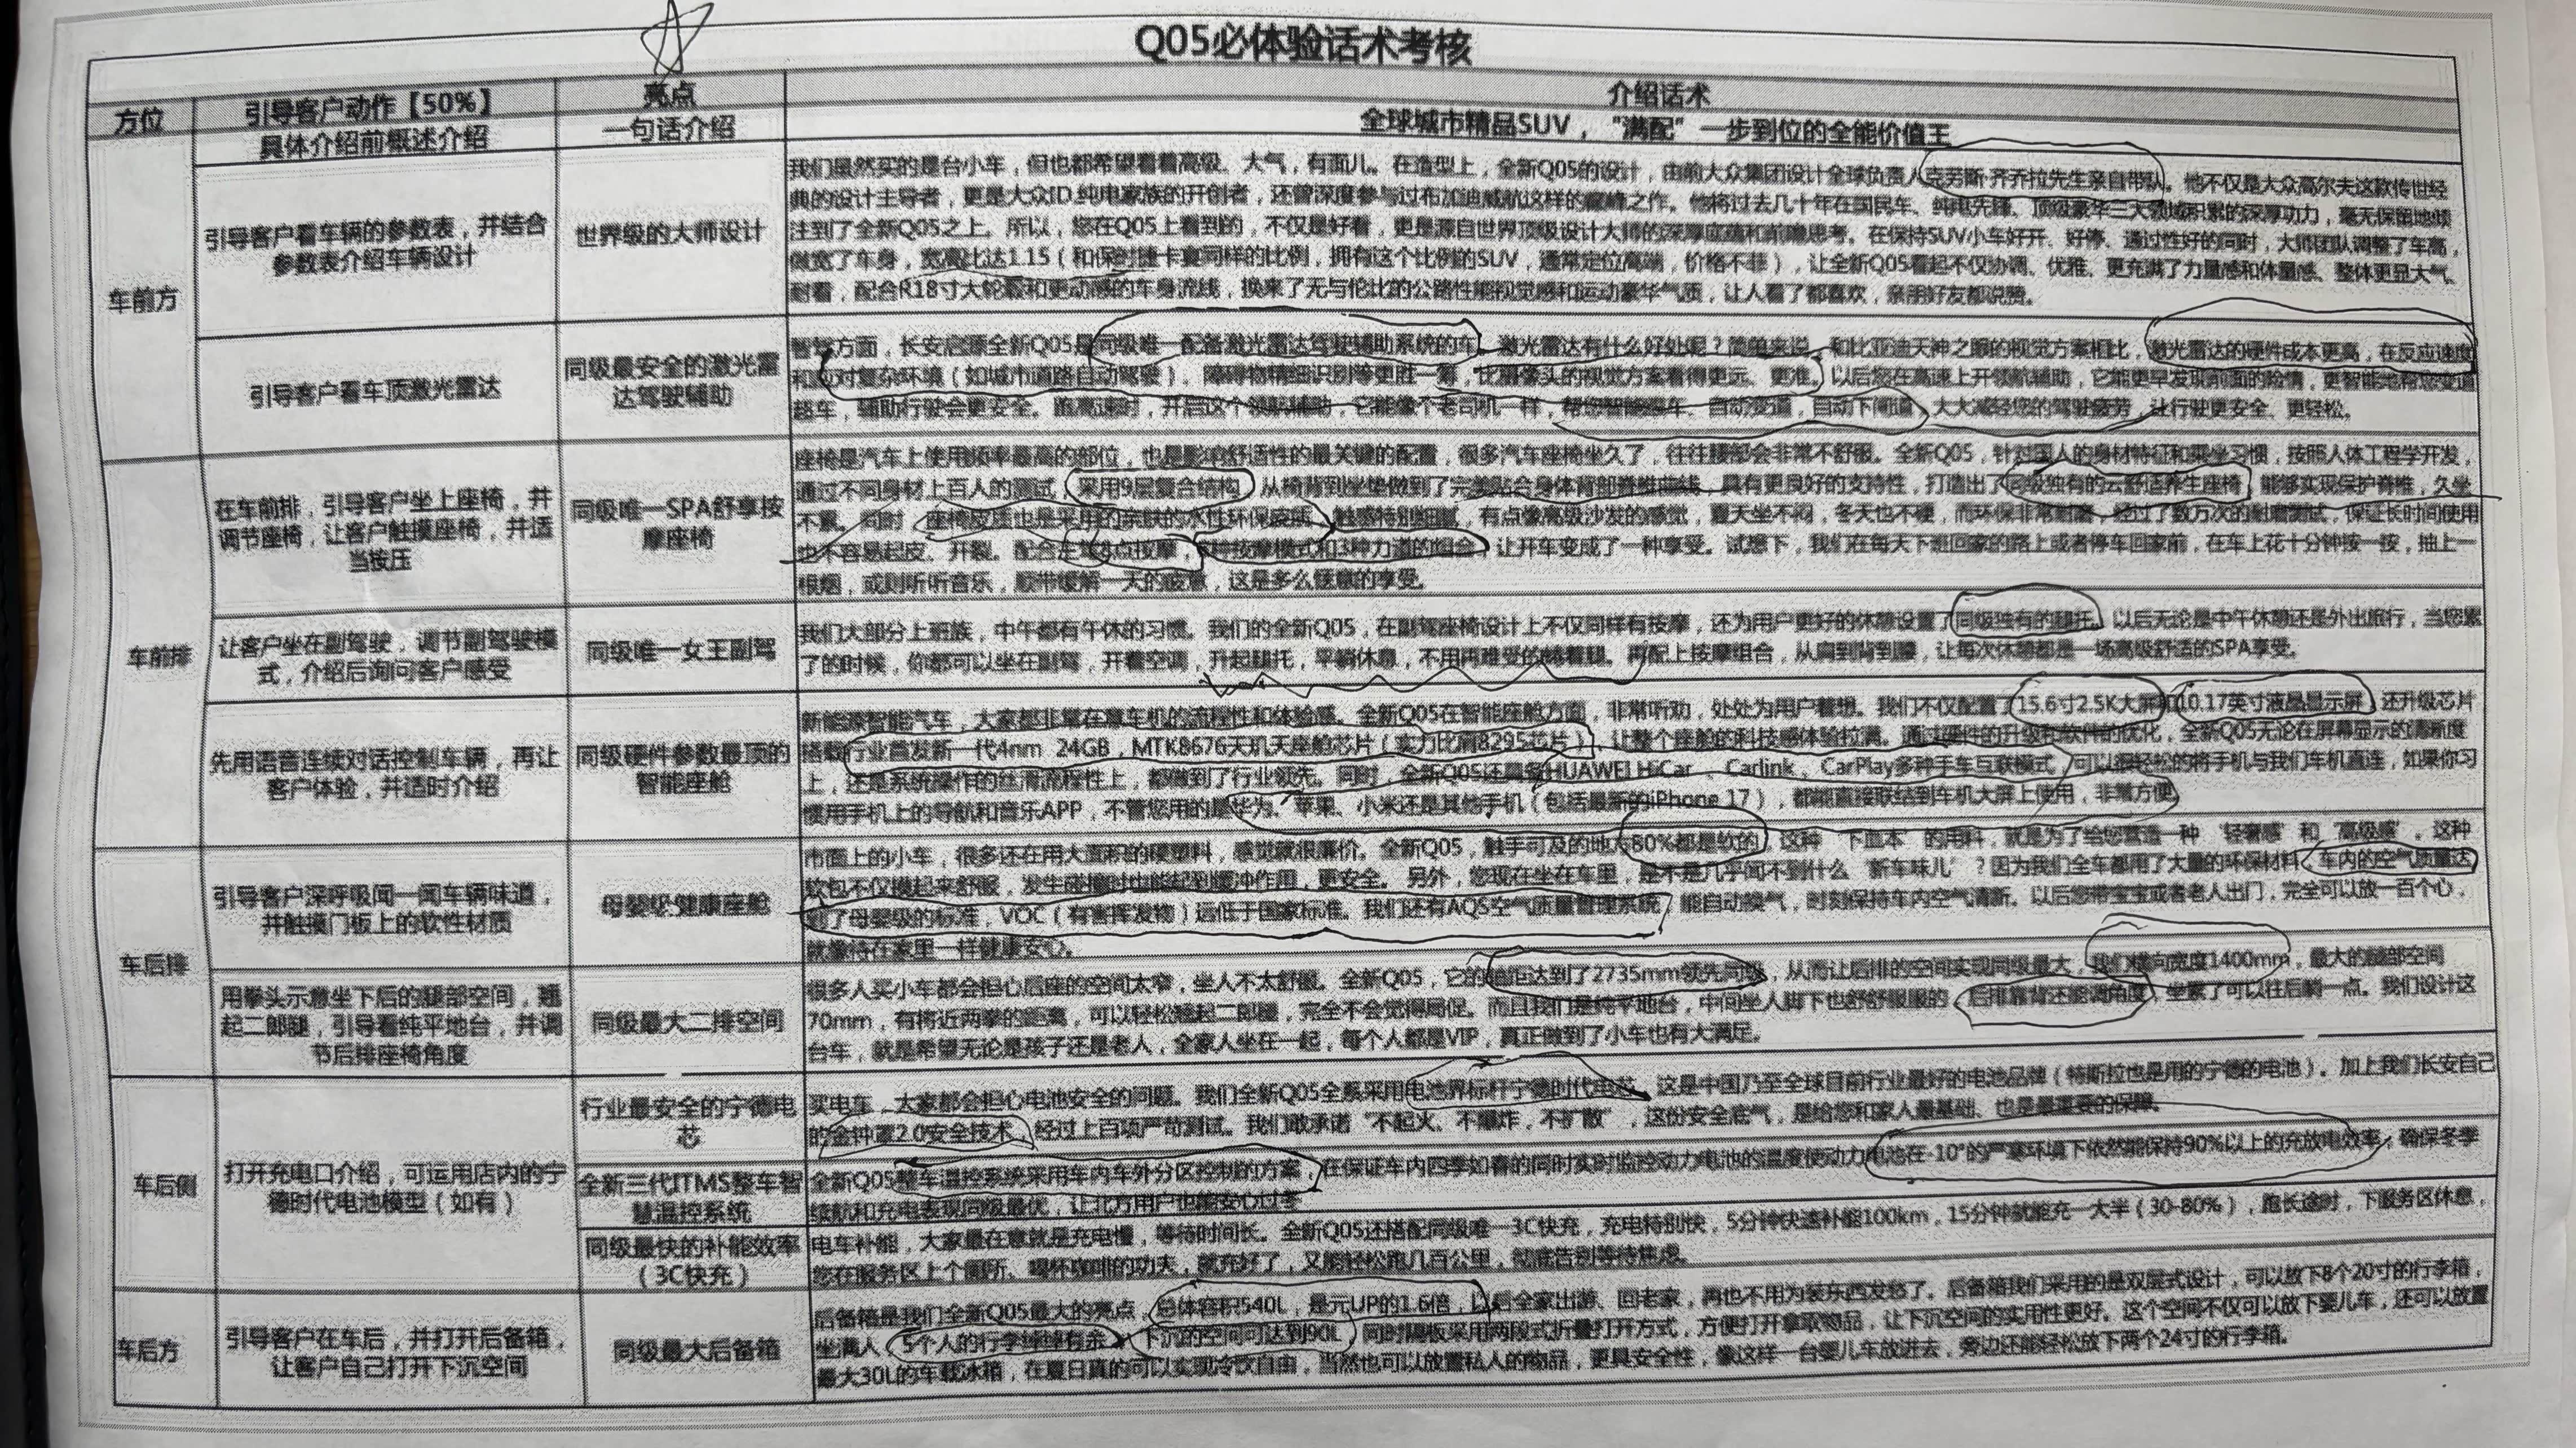 Q05必体验话术考核
方位
引导客户动作【50%】
亮点
介绍话术
具体介绍前概述介绍
一句话介绍
全球城市精品SUV，“满配”一步到位的全能价值王
车前方
引导客户看车辆的参数表，并结合
参数表介绍车辆设计
世界级的大师设计
我们虽然买的是台小车，但也都希望看着高级、大气，有面儿。在造型上，全新Q05的设计，由前大众集团设计全球负责人克劳斯·齐乔拉先生亲自带队。他不仅是大众高尔夫这款传世经
典的设计主导者，更是大众ID.纯电家族的开创者，还曾深度参与过布加迪威航这样的巅峰之作。他将过去几十年在国民车、纯电先锋、顶级豪华三大领域积累的深厚功力，毫无保留地倾
注到了全新Q05之上。所以，您在Q05上看到的，不仅是好看，更是源自世界顶级设计大师的深厚底蕴和前瞻思考。在保持SUV小车好开、好停、通过性好的同时，大师团队调整了车高，
做宽了车身，宽高比达1.15（和保时捷卡宴同样的比例，拥有这个比例的SUV，通常定位高端，价格不菲），让全新Q05看起不仅协调、优雅、更充满了力量感和体量感、整体更显大气、
耐看，配合R18寸大轮毂和更动感的车身流线，换来了无与伦比的公路性能视觉感和运动豪华气质，让人看了都喜欢，亲朋好友都说赞。
引导客户看车顶激光雷达
同级最安全的激光雷
达驾驶辅助
智驾方面，长安启源全新Q05是同级唯一配备激光雷达驾驶辅助系统的车。激光雷达有什么好处呢？简单来说，和比亚迪天神之眼的视觉方案相比，激光雷达的硬件成本更高，在反应速度
和应对复杂环境（如城市道路自动驾驶）、障碍物精细识别等更胜一筹，比摄像头的视觉方案看得更远、更准。以后您在高速上开领航辅助，它能更早发现前面的险情，更智能地帮您变道
超车，辅助行驶会更安全。跑高速时，开启这个领航辅助，它能像个老司机一样，帮您智能跟车、自动变道，自动下匝道，大大减轻您的驾驶疲劳，让行驶更安全、更轻松。
车前排
在车前排，引导客户坐上座椅，并
调节座椅，让客户触摸座椅，并适
当按压
同级唯一SPA舒享按
摩座椅
座椅是汽车上使用频率最高的部位，也是影响舒适性的最关键的配置，很多汽车座椅坐久了，往往腰部会非常不舒服。全新Q05，针对国人的身材特征和乘坐习惯，按照人体工程学开发，
通过不同身材上百人的测试，采用9层复合结构，从椅背到坐垫做到了完美贴合身体背部脊椎曲线，具有更良好的支持性，打造出了同级独有的云舒适养生座椅，能够实现保护脊椎，久坐
不累。同时，座椅皮质也是采用的亲肤的水性环保皮质，触感特别细腻，有点像高级沙发的感觉，夏天坐不闷，冬天也不硬，而环保非常耐磨，经过了数万次的耐磨测试，保证长时间使用
也不容易起皮、开裂。配合主驾8点按摩，5种按摩模式和3种力道的组合，让开车变成了一种享受。试想下，我们在每天下班回家的路上或者停车回家前，在车上花十分钟按一按，抽上一
根烟，或则听听音乐，顺带缓解一天的疲惫，这是多么惬意的享受。
让客户坐在副驾驶，调节副驾驶模
式，介绍后询问客户感受
同级唯一女王副驾
我们大部分上班族，中午都有午休的习惯。我们的全新Q05，在副驾座椅设计上不仅同样有按摩，还为用户更好的休憩设置了同级独有的腿托。以后无论是中午休憩还是外出旅行，当您累
了的时候，你都可以坐在副驾，开着空调，升起腿托，平躺休息，不用再难受的蜷着腿。再配上按摩组合，从肩到背到腰，让每次休憩都是一场高级舒适的SPA享受。
先用语音连续对话控制车辆，再让
客户体验，并适时介绍
同级硬件参数最顶的
智能座舱
新能源智能汽车，大家都非常在意车机的流程性和体验感。全新Q05在智能座舱方面，非常听劝，处处为用户着想。我们不仅配置了15.6寸2.5K大屏和10.17英寸液晶显示屏，还升级芯片
搭载行业首发新一代4nm 24GB，MTK8676天玑天座舱芯片（实力比肩8295芯片），让整个座舱的科技感体验拉满。通过硬件的升级和软件的优化，全新Q05无论在屏幕显示的清晰度
上，还是系统操作的丝滑流程性上，都做到了行业领先。同时，全新Q05还具备HUAWEI HiCar 、Carlink、CarPlay多种手车互联模式，可以很轻松的将手机与我们车机直连，如果你习
惯用手机上的导航和音乐APP，不管您用的是华为、苹果、小米还是其他手机（包括最新的iPhone 17），都能直接联结到车机大屏上使用，非常方便。
车后排
引导客户深呼吸闻一闻车辆味道，
并触摸门板上的软性材质
母婴级健康座舱
市面上的小车，很多还在用大面积的硬塑料，感觉就很廉价。全新Q05，触手可及的地方80%都是软的，这种“下血本”的用料，就是为了给您营造一种“轻奢感”和“高级感”。这种
软包不仅摸起来舒服，发生碰撞时也能起到缓冲作用，更安全。另外，您现在坐在车里，是不是几乎闻不到什么“新车味儿”？因为我们全车都用了大量的环保材料，车内的空气质量达
到了母婴级的标准，VOC（有害挥发物）远低于国家标准。我们还有AQS空气质量管理系统，能自动换气，时刻保持车内空气清新。以后您带宝宝或者老人出门，完全可以放一百个心，
就像待在家里一样健康安心。
用拳头示意坐下后的腿部空间，翘
起二郎腿，引导看纯平地台，并调
节后排座椅角度
同级最大二排空间
很多人买小车都会担心后座的空间太窄，坐人不太舒服。全新Q05，它的轴距达到了2735mm领先同级，从而让后排的空间实现同级最大，我们横向宽度1400mm，最大的腿部空间
70mm，有将近两拳的距离，可以轻松翘起二郎腿，完全不会觉得局促。而且我们是纯平地台，中间坐人脚下也舒舒服服的，后排靠背还能调角度，坐累了可以往后躺一点。我们设计这
台车，就是希望无论是孩子还是老人，全家人坐在一起，每个人都是VIP，真正做到了小车也有大满足。
车后侧
打开充电口介绍，可运用店内的宁
德时代电池模型（如有）
行业最安全的宁德电
芯
买电车，大家都会担心电池安全的问题。我们全新Q05全系采用电池界标杆宁德时代电芯，这是中国乃至全球目前行业最好的电池品牌（特斯拉也是用的宁德的电池）。加上我们长安自己
的金钟罩2.0安全技术，经过上百项严苛测试。我们敢承诺“不起火、不爆炸，不扩散”，这份安全底气，是给您和家人最基础、也是最重要的保障。
全新三代ITMS整车智
慧温控系统
全新Q05整车温控系统采用车内车外分区控制的方案，在保证车内四季如春的同时实时监控动力电池的温度使动力电池在-10°的严寒环境下依然能保持90%以上的充放电效率，确保冬季
续航和充电表现同级最优，让北方用户也能安心过冬
同级最快的补能效率
（3C快充）
电车补能，大家最在意就是充电慢，等待时间长。全新Q05还搭配同级唯一3C快充，充电特别快，5分钟快速补能100km，15分钟就能充一大半（30-80%），跑长途时，下服务区休息，
您在服务区上个厕所、喝杯咖啡的功夫，就充好了，又能轻松跑几百公里，彻底告别等待焦虑。
车后方
引导客户在车后，并打开后备箱，
让客户自己打开下沉空间
同级最大后备箱
后备箱是我们全新Q05最大的亮点，总体容积540L，是元UP的1.6倍，以后全家出游、回老家，再也不用为装东西发愁了。后备箱我们采用的是双层式设计，可以放下8个20寸的行李箱，
坐满人，5个人的行李绰绰有余，下沉的空间可达到90L，同时隔板采用两段式折叠打开方式，方便打开拿取物品，让下沉空间的实用性更好。这个空间不仅可以放下婴儿车，还可以放置
最大30L的车载冰箱，在夏日真的可以实现冷饮自由，当然也可以放置私人的物品，更具安全性，像这样一台婴儿车放进去，旁边还能轻松放下两个24寸的行李箱。